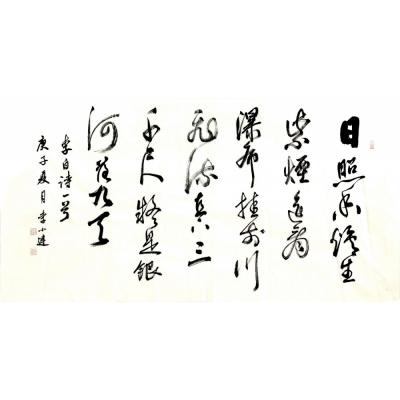 日照香炉生
紫煙遥看
瀑布挂前川
飞流直下三
千尺疑是銀
河落九天
李白诗一首
庚子夏月李小